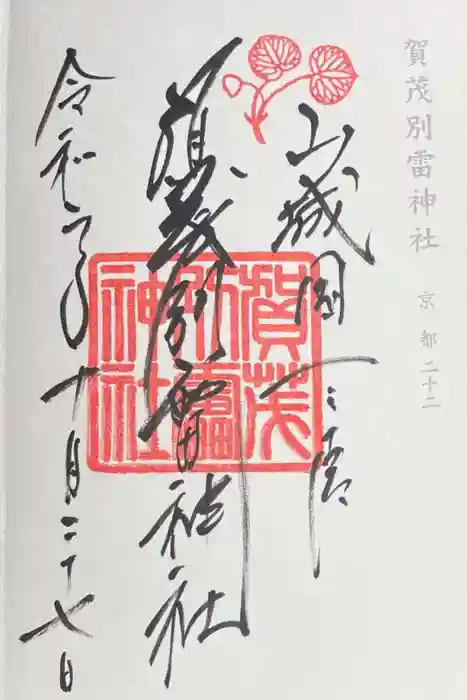 賀茂別雷神社 京都二十二
山城國一之宮
賀茂別雷神社
令和元年十月二十七日
賀茂
別雷
神社